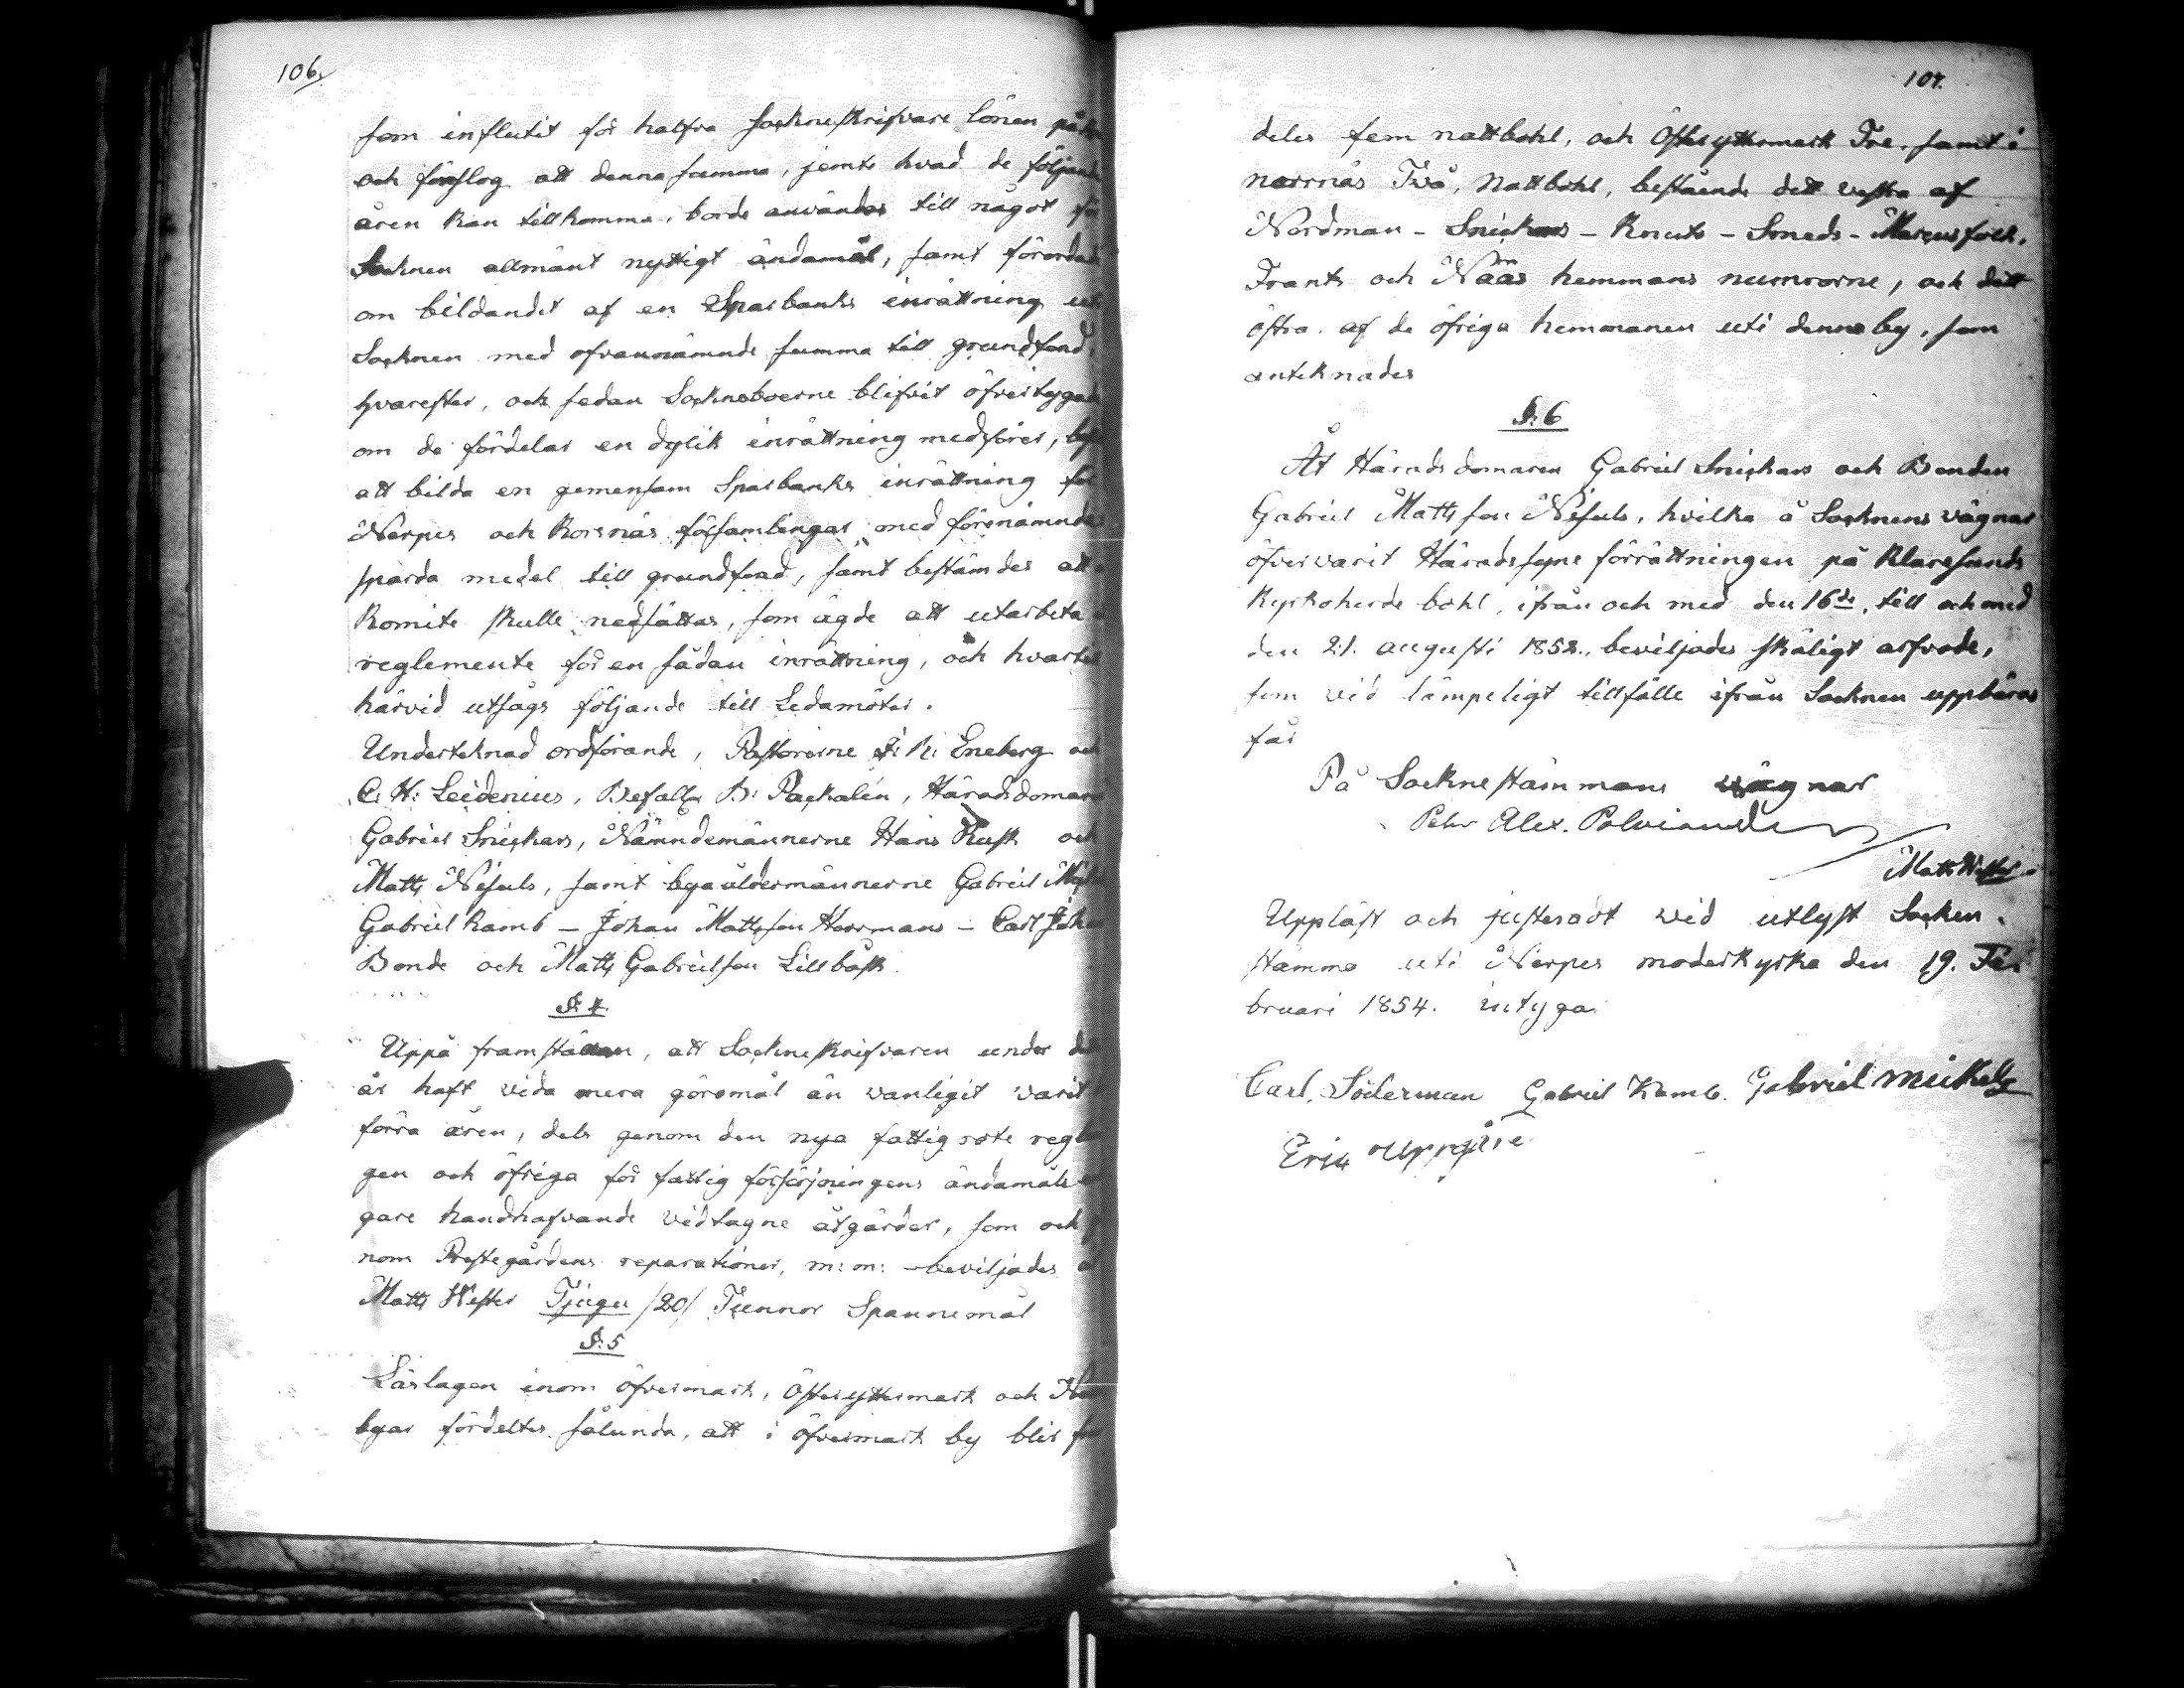 106.
som influtit för halfva Sockneskrifvare lönen
och föreslog att denna summa, jemte hvad de följande
åren kan tillkomma, borde användas till något för
Socknen allmänt nyttigt ändamål, samt förordade
om bildandet af en Sparbanks inrättning uti
Socknen med ofvannämnde summa till grundfond,
hvarefter, och sedan Sockneboerne blifvit öfvertygade
om de fördelar en dylik inrättning medförer,
att bilda en gemensam Sparbanks inrättning för
Nerpes och Korsnäs församlingar, med förenämnde
sparda medel till grundfond, samt bestämdes att
Komite skulle nedsättas, som ägde att utarbeta
reglemente för en sådan inrättning, och hvartill
härvid utsågs följande till Ledamöter.
Undertecknad ordförande, Pastorerne F: K: Eneberg och
C: H: Leidenius, Befallm B: Packalén, Häradsdomaren
Gabriel Snickars, Nämndemännerne Hans Rusk och
Matts Nisuls, samt byaåldermännerne Gabriel
Gabriel Kamb – Johan Mattsson Norrmans – Carl Johan
Bonde och Matts Gabrielsson Lillbåsk.
§: 4.
Uppå framställan, att Sockneskrifvaren under det
år haft vida mera göromål än vanligit varit
förra åren, dels genom den nya fattig rote regle
gen och öfriga för fattig försörjningens ändamåls
gare handhafvande vidtagne åtgärder, som och
nom Prestegårdens reparationer, m: m: – beviljades
Matts Wester Tjugu /20/ Tunnor Spannemål
§: 5
Läslagen inom öfvermark, Österyttermark och
byar fördeltes sålunda, att i öfvermark by blir
107.
deles fem nattbohl, och Österyttermark Tre, samt i
norrnäs Två, Nattbohl, bestående dett vestra af
Nordman – Snickars – Knuts – Smeds – Marcusfolk,
Frants och Nääs hemmans numrorne, och dett
östra af de öfriga hemmanen uti denne by, som
antecknades
§: 6
Åt Häradsdomaren Gabriel Snickars och Bonden
Gabriel Mattsson Nisuls, hvilka å Socknens vägnar
öfvervarit Häradssyne förrättningen på Klaresunds
Kyrkoherde bohl, ifrån och med den 16de, till och med
den 21. augusti 1852., beviljades skäligt arfvode,
som vid lämpeligt tillfälle ifrån Socknen uppbäras
får
På Sockne stämmans vägnar
Pehr Alex. Polviander
Matts Wester
Uppläst och justeradt wid utlyst Socken
stämma uti Nerpes moderkyrka den 19. Fe
bruari 1854. intyga
Carl, Söderman Gabriel Kamb. Gabriel mickels
Eric